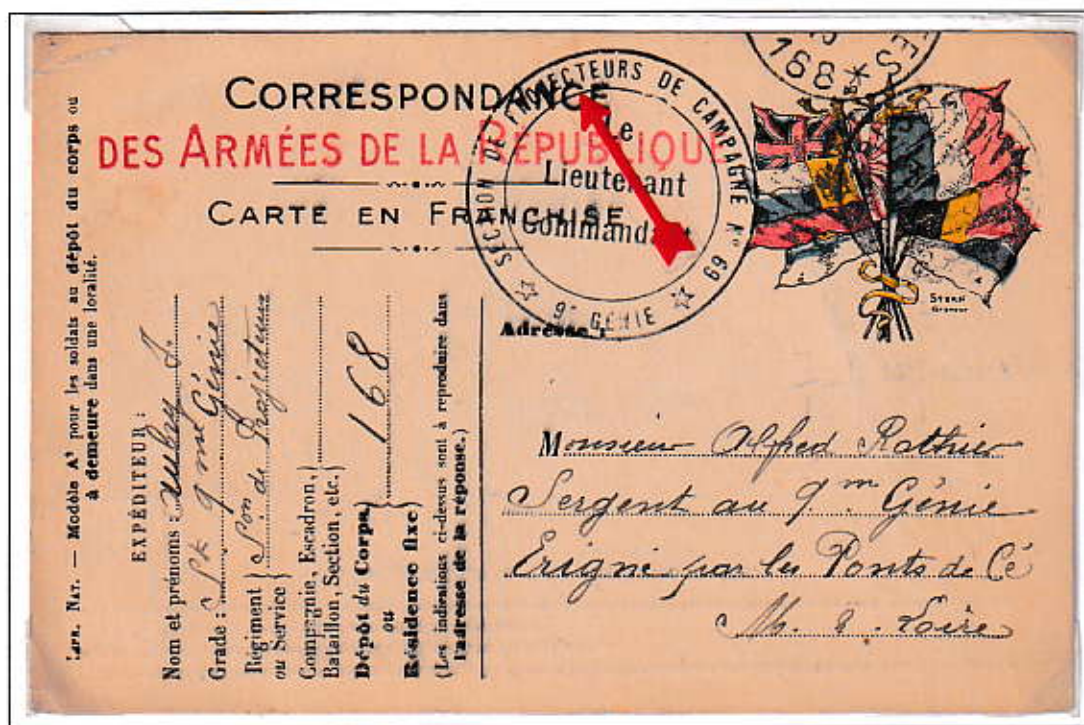 CORRESPONDANCE
DES ARMÉES DE LA RÉPUBLIQUE
CARTE EN FRANCHISE
SECTION DE PROJECTEURS DE CAMPAGNE N° 69
9e GÉNIE
Le
Lieutenant
Commandant
168
STERN
Adresse :
Monsieur Alfred Rathier
Sergent au 9.me Génie
Erigné par les Ponts de Cé
M. & Loire
IMPR. NAT. — Modèle A1 pour les soldats au dépôt du corps ou
à demeure dans une localité.
EXPÉDITEUR :
Nom et prénoms : Aubry J.
Grade : 9me Génie
Régiment ou Service } Son de Projecteurs
Compagnie, Escadron,
Bataillon, Section, etc.
Dépôt du Corps
ou
Résidence fixe) 168
(Les indications ci-dessus sont à reproduire dans
l'adresse de la réponse.)